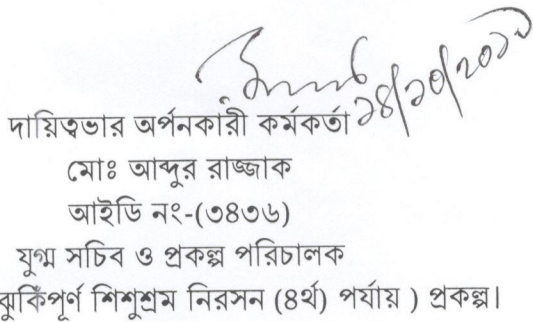 দায়িত্বভার অর্পনকারী কর্মকর্তা
মোঃ আব্দুর রাজ্জাক
আইডি নং-(৩৪৩৬)
যুগ্ম সচিব ও প্রকল্প পরিচালক
ঝুকিঁপূর্ণ শিশুশ্রম নিরসন (৪র্থ) পর্যায় ) প্রকল্প।